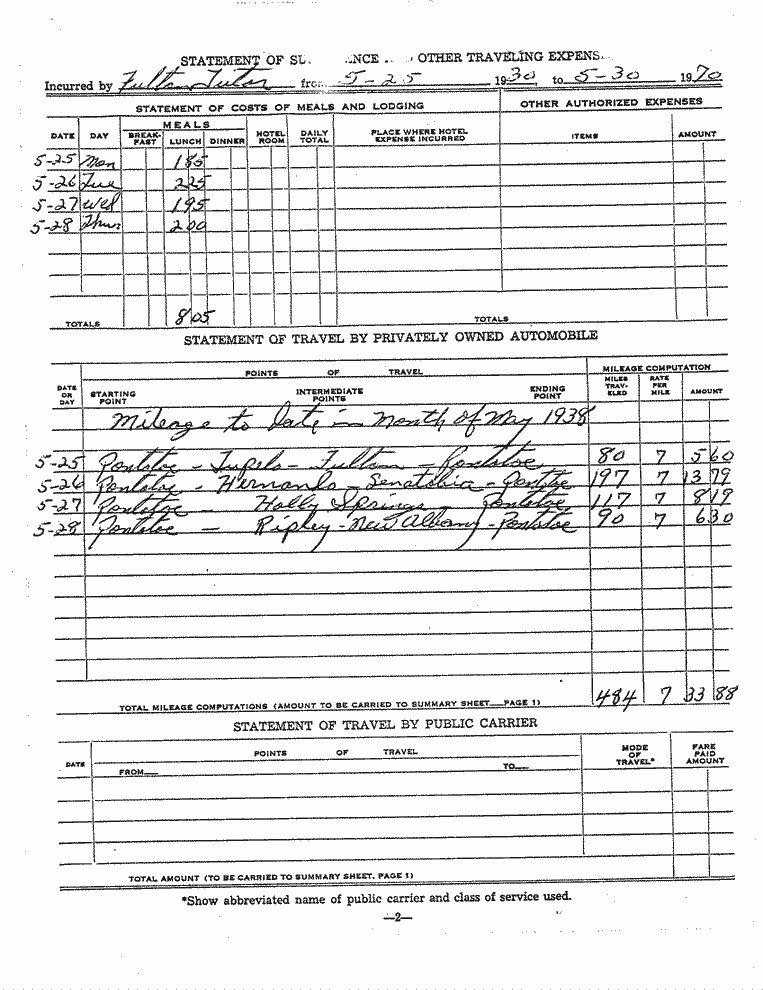 STATEMENT OF SU NCE OTHER TRAVELING EXPENS
Incurred by Fulton Tutor from 5-25 1930 to 5-30 1970
STATEMENT OF COSTS OF MEALS AND LODGING OTHER AUTHORIZED EXPENSES
DATE DAY MEALS BREAK-FAST LUNCH DINNER HOTEL ROOM DAILY TOTAL PLACE WHERE HOTEL EXPENSE INCURRED ITEMS AMOUNT
5-25 Mon 1 85
5-26 Tue 2 25
5-27 Wed 1 95
5-28 Thur 2 00
TOTALS 8 05 TOTALS
STATEMENT OF TRAVEL BY PRIVATELY OWNED AUTOMOBILE
POINTS OF TRAVEL MILEAGE COMPUTATION
DATE OR DAY STARTING POINT INTERMEDIATE POINTS ENDING POINT MILES TRAV-ELED RATE PER MILE AMOUNT
Mileage to Date in Month of May 1938
5-25 Pontotoc - Tupelo - Fulton - Pontotoc 80 7 5 60
5-26 Pontotoc - Hernando - Senatobia - Pontotoc 197 7 13 79
5-27 Pontotoc - Holly Springs - Pontotoc 117 7 8 19
5-28 Pontotoc - Ripley - New Albany - Pontotoc 90 7 6 30
TOTAL MILEAGE COMPUTATIONS (AMOUNT TO BE CARRIED TO SUMMARY SHEET PAGE 1) 484 7 33 88
STATEMENT OF TRAVEL BY PUBLIC CARRIER
DATE POINTS OF TRAVEL MODE OF TRAVEL* FARE PAID AMOUNT
FROM TO
TOTAL AMOUNT (TO BE CARRIED TO SUMMARY SHEET, PAGE 1)
*Show abbreviated name of public carrier and class of service used.
—2—